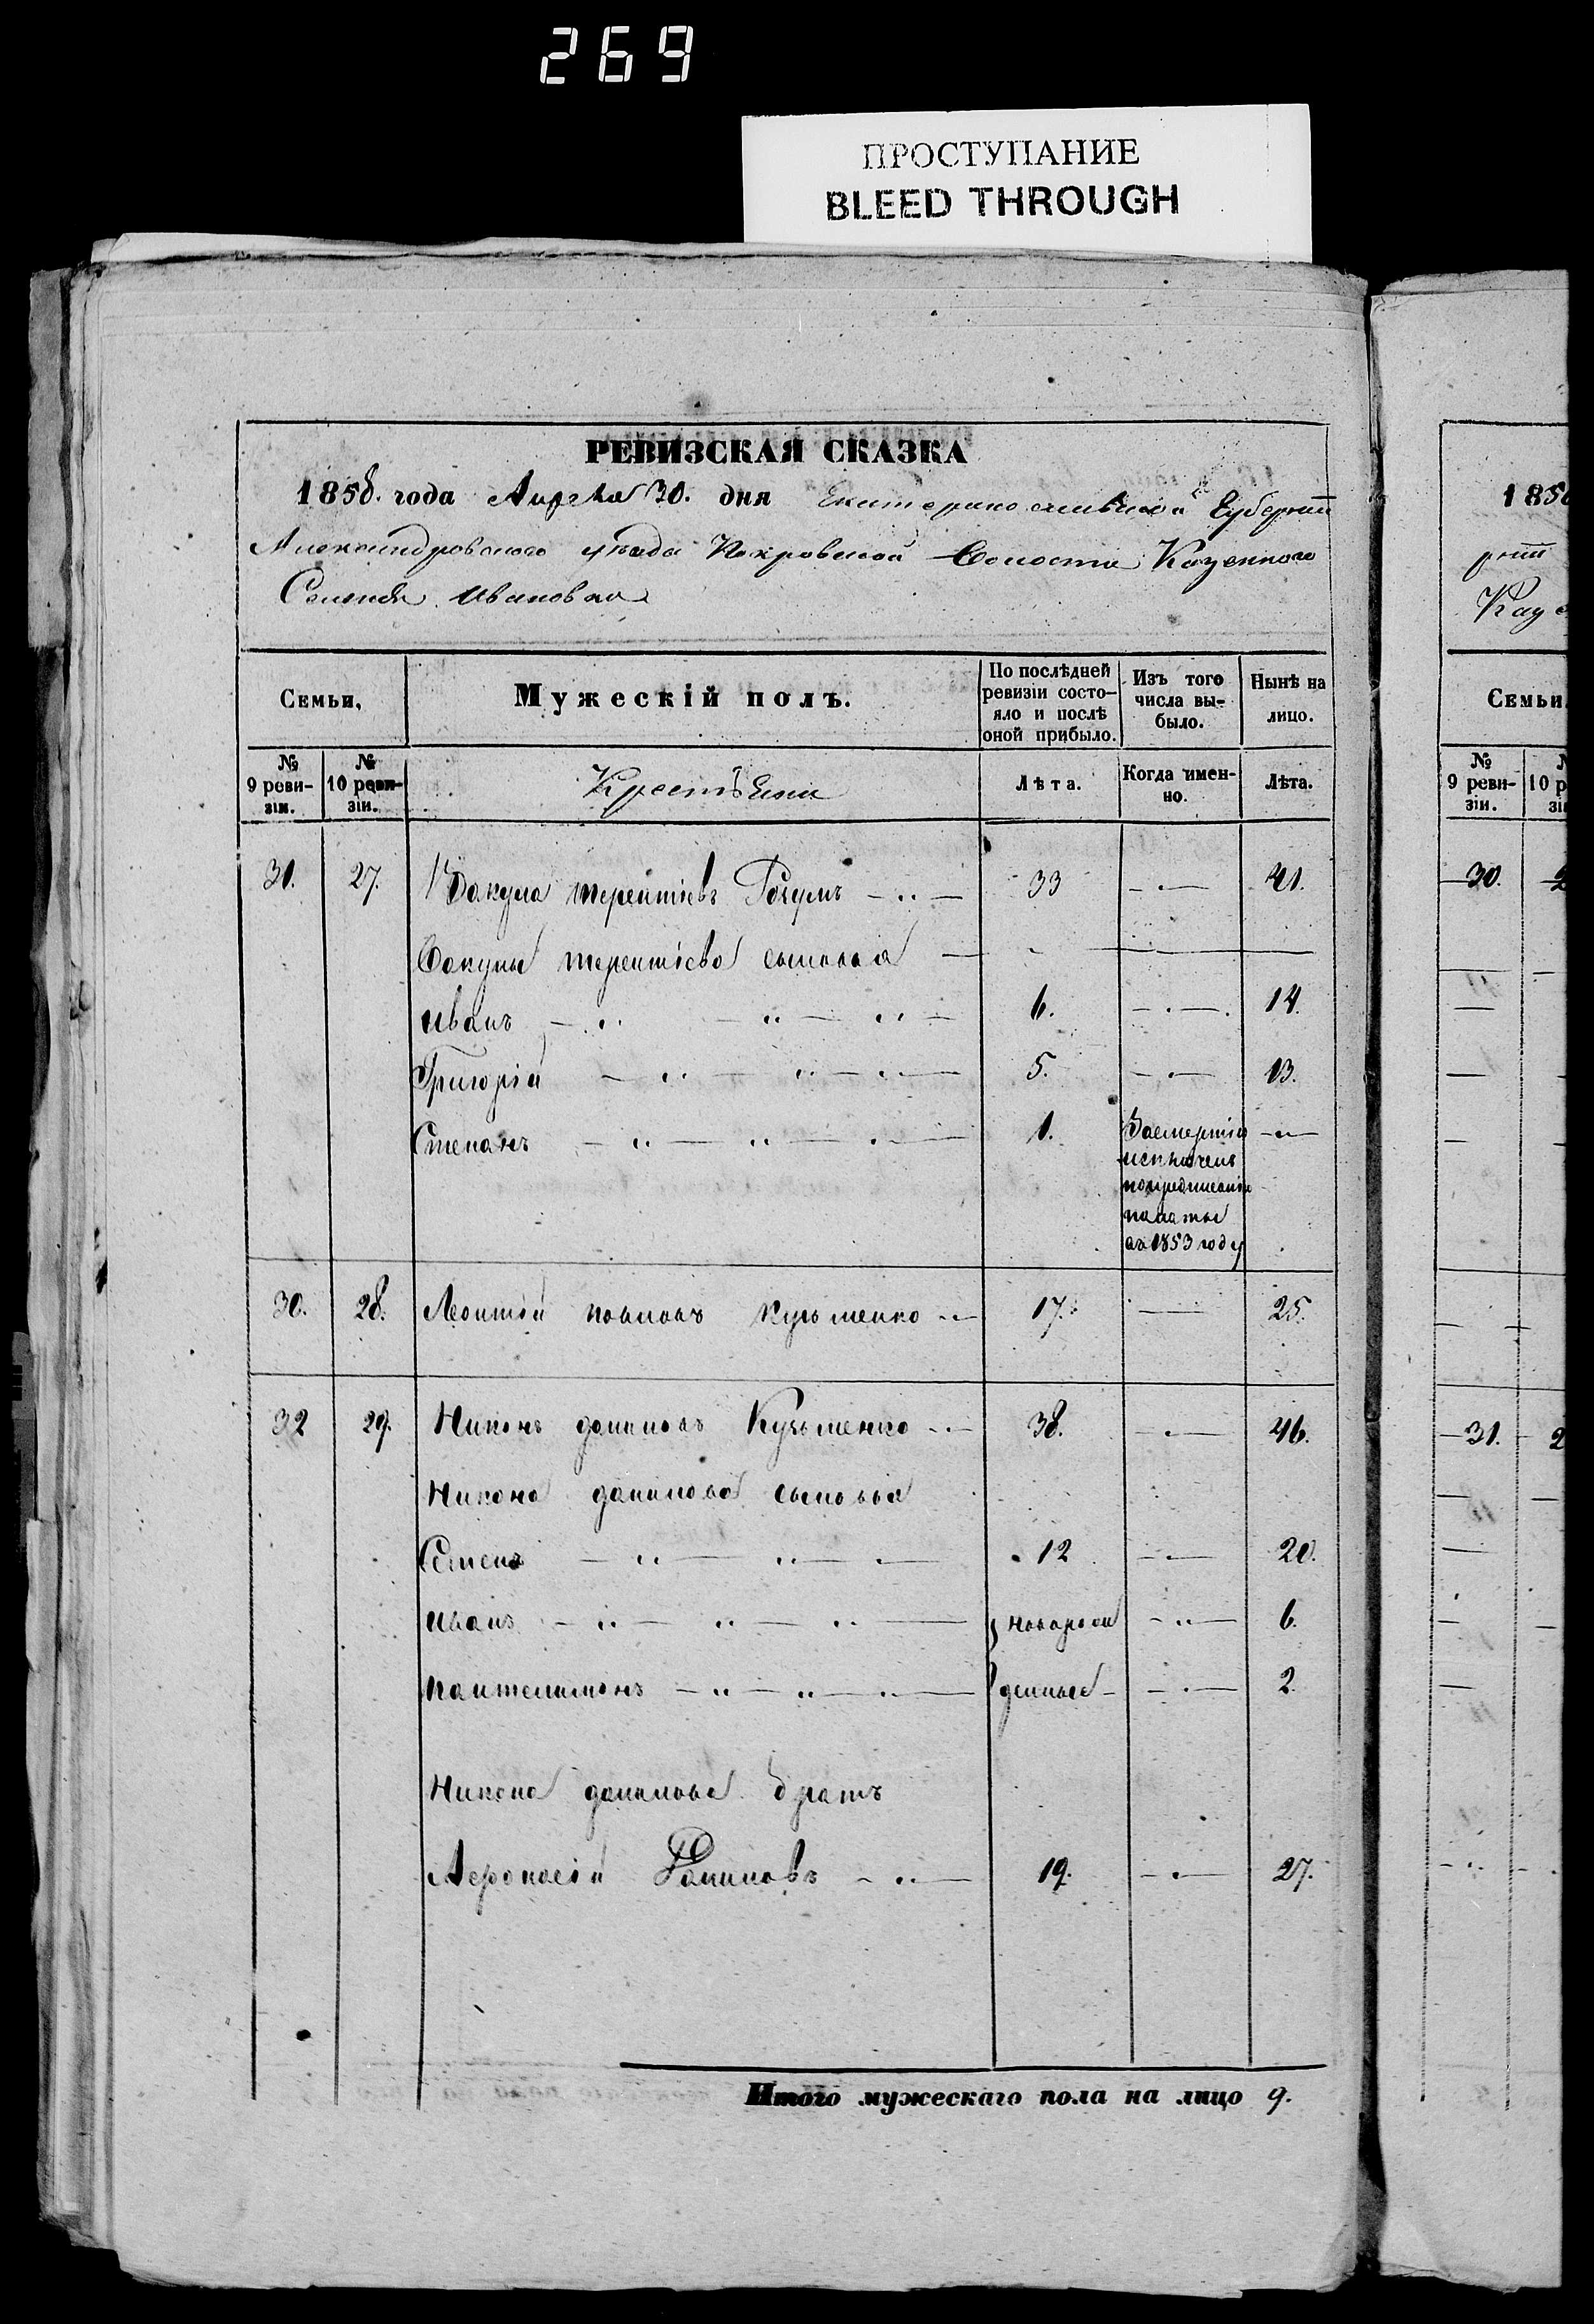 269
ПРОСТУПАНИЕ
BLEED THROUGH
РЕВИЗСКАЯ СКАЗКА
1858. года Апреля 30. дня Екатеринославской Губернии
Александровского уѣзда Покровской Волости Казенного
Селенія Ивановки
Семьи,
Мужескій полъ.
По послѣдней ревизіи состо-
яло и послѣ
оной прибыло.
Изъ того
числа вы-
было.
Нынѣ на
лицо.
№
9 реви-
зіи.
№
10 реви-
зіи.
Крестьяне
Лѣта.
Когда имен-
но.
Лѣта.
31. 27. Вакула терентіевъ 33 41.
Вакулы терентіева сыновья
иванъ 6. 14.
Григорій 5. 13.
Степанъ 1.
Засмертію
исключенъ
попредписанію
палаты
въ 1853 году
30. 28. Леонтій павловъ Кузьменко 17. 25.
32 29. Никонъ даниловъ Кузьменко 38. 46.
Никона данилова сыновья
Семенъ 12 20.
иванъ новорож 6.
пантелимонъ денные 2.
Никона данилова братъ
Аѳонасій Даниловъ 19. 27.
Итого мужескаго пола на лицо 9.
185
рніи
Каз
Семьи
№
9 реви-
зіи.
10 р
30.
31.